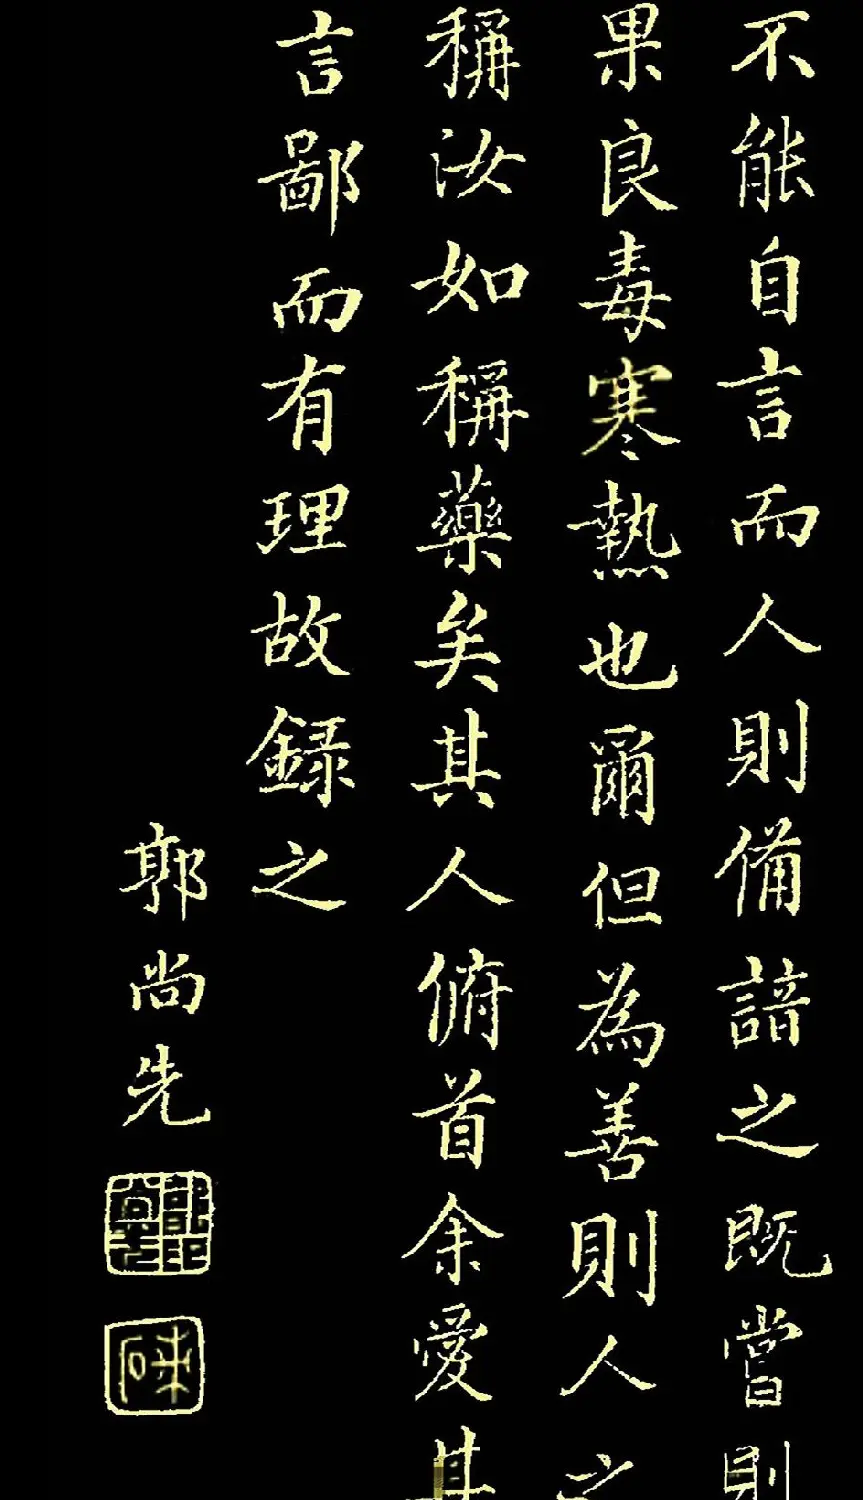 不能自言而人則備諳之既嘗則
果良毒寒熱也爾但為善則人之
稱汝如稱藥矣其人俯首余愛其
言鄙而有理故録之
郭尚先
郭尚先印